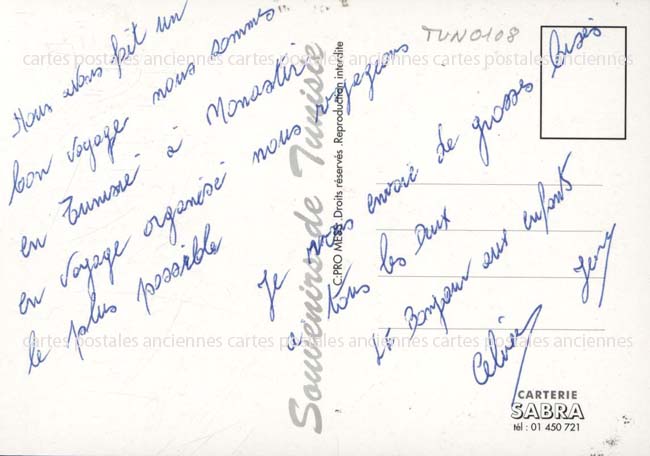 TUN0108
Nous avons fait un
bon voyage nous sommes
en Tunisie à Monastir
en voyage organisé nous voyageons
le plus possible
Je vous envoie de grosses bises
à tous les deux
Bonjour aux enfants
Souvenirs de Tunisie
C.PRO MESS .Droits réservés .Reproduction interdite
cartes postales anciennes cartes postales anciennes cartes postales anciennes
cartes postales anciennes cartes postales anciennes cartes postales anciennes
CARTERIE
SABRA
tél : 01 450 721